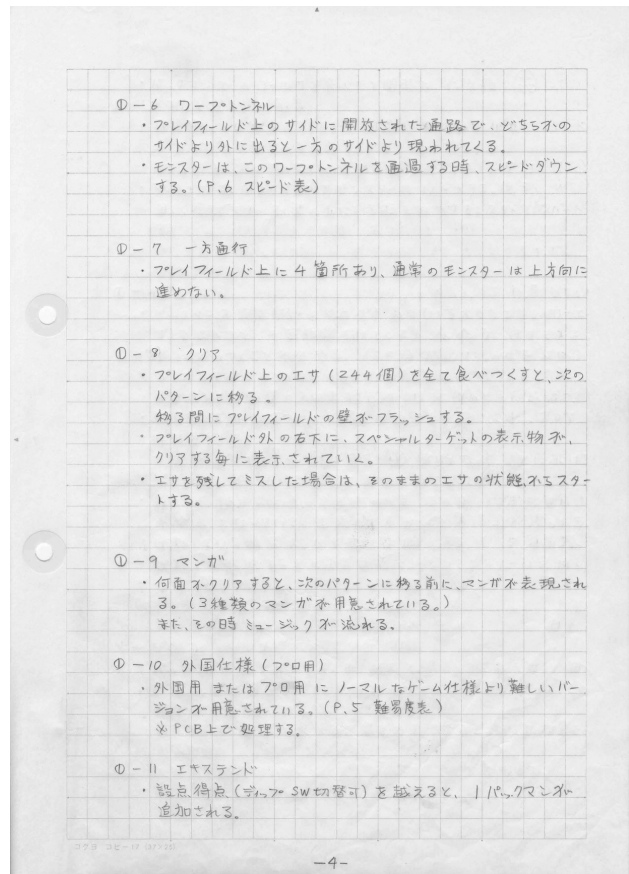 ①-6 ワープトンネル
・プレイフィールド上のサイドに開放された通路で、どちらかの
サイドより外に出ると一方のサイドより現われてくる。
・モンスターは、このワープトンネルを通過する時、スピードダウン
する。(P.6 スピード表)
①-7 一方通行
・プレイフィールド上に4箇所あり、通常のモンスターは上方向に
進めない。
①-8 クリア
・プレイフィールド上のエサ(244個)を全て食べつくすと、次の
パターンに移る。
移る間にプレイフィールドの壁がフラッシュする。
・プレイフィールド外の右下に、スペシャルターゲットの表示物が、
クリアする毎に表示されていく。
・エサを残してミスした場合は、そのままのエサの状態からスター
トする。
①-9 マンガ
・何面かクリアすると、次のパターンに移る前に、マンガが表現され
る。(3種類のマンガが用意されている。)
また、その時ミュージックが流れる。
①-10 外国仕様(プロ用)
・外国用またはプロ用にノーマルなゲーム仕様より難しいバー
ジョンが用意されている。(P.5 難易度表)
※PCB上で処理する。
①-11 エキステンド
・設点得点(ディップSW切替可)を越えると、1パックマンが
追加される。
-4-